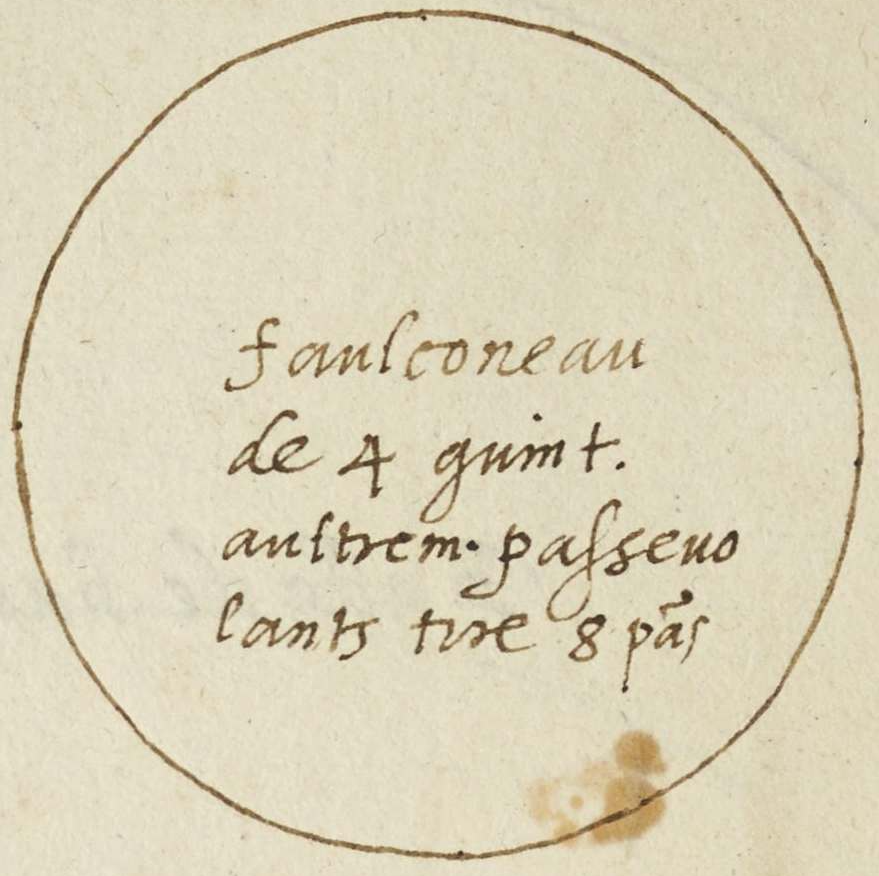 faulconeau
de 4 quint.
aultrem. passevo
lants tire 8 pas